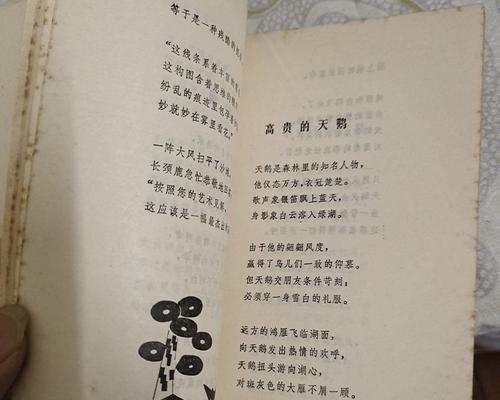 等于是一种残酷的
“这线条系着丰富的
这构图含着思维的
纷乱的痕迹里包孕着
妙就妙在雾里看花。”
一阵大风扫平了沙滩，
长颈鹿急忙恭敬地
“按照您的艺术见解，
这应该是一幅最杰出
高贵的天鹅
天鹅是森林里的知名人物，
他仪态万方，衣冠楚楚。
歌声象银笛飘上蓝天，
身影象白云溶入绿湖。
由于他的翩翩风度，
赢得了鸟儿们一致的仰慕。
但天鹅交朋友条件苛刻：
必须穿一身雪白的礼服。
远方的鸿雁飞临湖面，
向天鹅发出热情的欢呼，
天鹅扭头游向湖心，
对斑灰色的大雁不屑一顾。